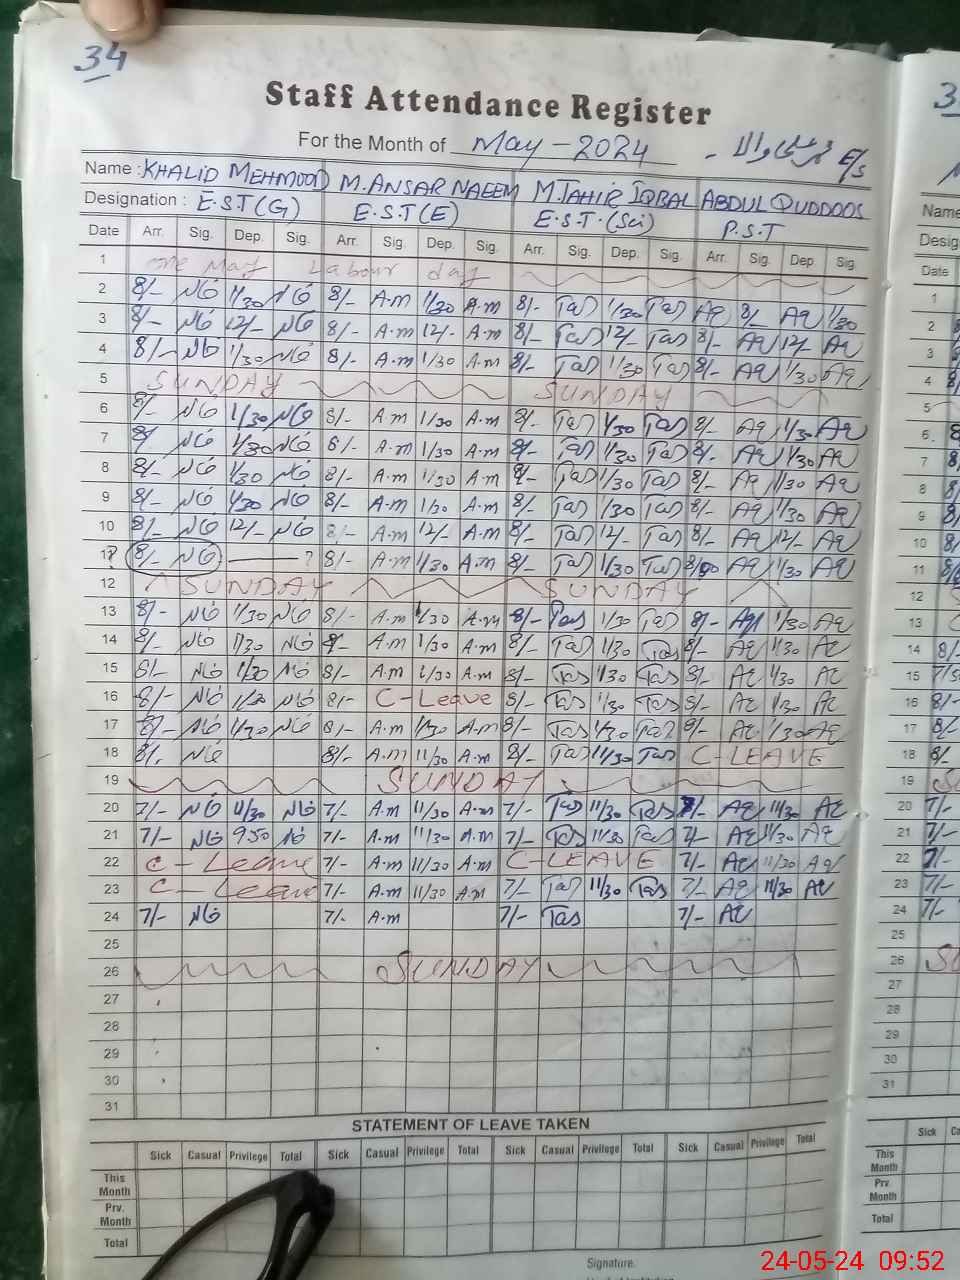 34
Staff Attendance Register
For the Month of May-2024
Name : KHALID MEHMOOD M.ANSAR NAEEM M.TAHIR IQBAL ABDUL QUDDOOS
Designation : E.S.T(G) E.S.T(E) E.S.T.(Sci) P.S.T
Date Arr. Sig. Dep. Sig. Arr. Sig. Dep. Sig. Arr. Sig. Dep. Sig. Arr. Sig. Dep Sig.
1 May Labour day
2 8/- 1/30 8/- A.m 1/30 A.m 8/- Tas 1/30 Tas AQ 8/- AQ 1/30
3 8/- 12/- 8/- A.m 12/- A.m 8/- Tas 12/- Tas 8/- AQ 12/- AQ
4 8/- 1/30 8/- A.m 1/30 A.m 8/- Tas 1/30 Tas 8/- AQ 1/30 AQ
5 SUNDAY SUNDAY
6 8/- 1/30 8/- A.m 1/30 A.m 8/- Tas 1/30 Tas 8/- AQ 1/30 AQ
7 8/- 1/30 8/- A.m 1/30 A.m 8/- Tas 1/30 Tas 8/- AQ 1/30 AQ
8 8/- 1/30 8/- A.m 1/30 A.m 8/- Tas 1/30 Tas 8/- AQ 1/30 AQ
9 8/- 1/30 8/- A.m 1/30 A.m 8/- Tas 1/30 Tas 8/- AQ 1/30 AQ
10 8/- 12/- 8/- A.m 12/- A.m 8/- Tas 12/- Tas 8/- AQ 12/- AQ
11 8/- ? 8/- A.m 1/30 A.m 8/- Tas 1/30 Tas 8/00 AQ 1/30 AQ
12 SUNDAY SUNDAY
13 8/- 1/30 8/- A.m 1/30 A.m 8/- Tas 1/30 Tas 8/- AQ 1/30 AQ
14 8/- 1/30 8/- A.m 1/30 A.m 8/- Tas 1/30 Tas 8/- AQ 1/30 AQ
15 8/- 1/30 8/- A.m 1/30 A.m 8/- Tas 1/30 Tas 8/- AQ 1/30 AQ
16 8/- 1/30 8/- C-Leave 8/- Tas 1/30 Tas 8/- AQ 1/30 AQ
17 8/- 1/30 8/- A.m 1/30 A.m 8/- Tas 1/30 Tas 8/- AQ 1/30 AQ
18 8/- 8/- A.m 11/30 A.m 8/- Tas 11/30 Tas C-LEAVE
19 SUNDAY
20 7/- 11/30 7/- A.m 11/30 A.m 7/- Tas 11/30 Tas 7/- AQ 11/30 AQ
21 7/- 950 7/- A.m 11/30 A.m 7/- Tas 11/30 Tas 7/- AQ 11/30 AQ
22 C-Leave 7/- A.m 11/30 A.m C-LEAVE 7/- AQ 11/30 AQ
23 C-Leave 7/- A.m 11/30 A.m 7/- Tas 11/30 Tas 7/- AQ 11/30 AQ
24 7/- 7/- A.m 7/- Tas 7/- AQ
25
26 SUNDAY
27
28
29
30
31
STATEMENT OF LEAVE TAKEN
Sick Casual Privilege Total Sick Casual Privilege Total Sick Casual Privilege Total Sick Casual Privilege Total
This Month
Prv. Month
Total
Signature.
Name
Date
1
2
3
4
5
6
7
8
9
10
11
12
13
14 8/-
15
16 8/-
17 8/-
18 8/-
19
20 7/-
21 7/-
22 7/-
23 7/-
24 7/-
25
26
27
28
29
30
31
Sick
This Month
Prv. Month
Total
24-05-24 09:52